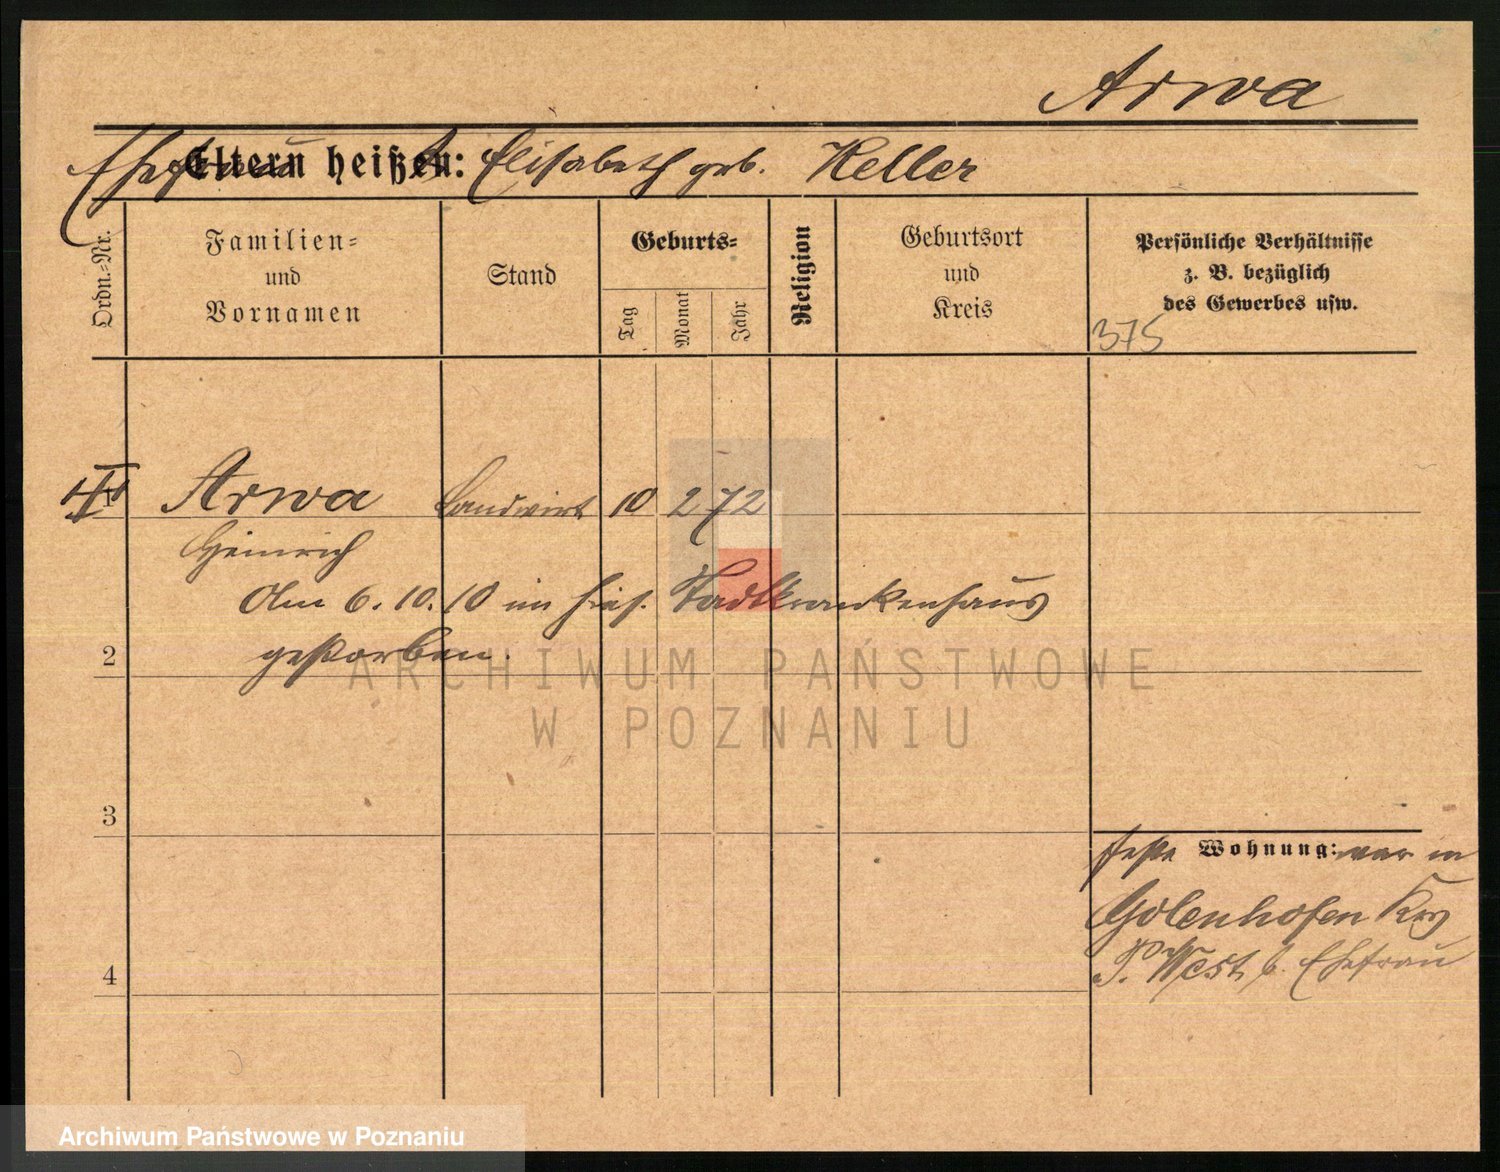 Arwa
Ehefrau Eltern heißen: Elisabeth geb. Keller
Ordn.=Nr.
Familien= und Vornamen
Stand
Geburts=
Tag
Monat
Jahr
Religion
Geburtsort und Kreis
Persönliche Verhältnisse
z. B. bezüglich
des Gewerbes usw.
375
1 Arwa Landwirt 10 2 72
Heinrich
Am 6. 10. 10 im hies. Stadtkrankenhaus
gestorben.
2
3
4
feste Wohnung: war in
Golenhofen Krs
P. West b. Ehefrau
ARCHIWUM PAŃSTWOWE
W POZNANIU
Archiwum Państwowe w Poznaniu